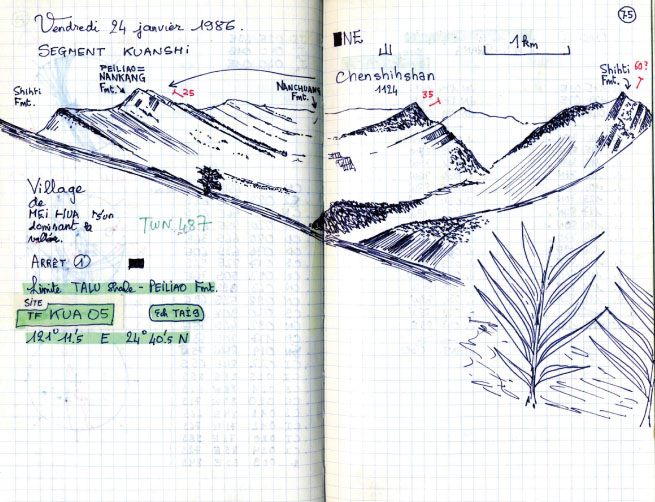 Vendredi 24 janvier 1986.
SEGMENT KUANSHI
75
NE
1 km
PEILIAO =
NANKANG
Fmt.
25
Shihti
Fmt.
NANCHUANG
Fmt.
Chenshihshan
1124
35
Shihti
Fmt.
60?
Village
de
MEI HUA
dominant la
vallée.
TWN 487
ARRÊT 1
Limite TALU Shale - PEILIAO Fmt.
SITE
TF KUA 05
Ech TAI9
121° 11'.5 E 24° 40'.5 N